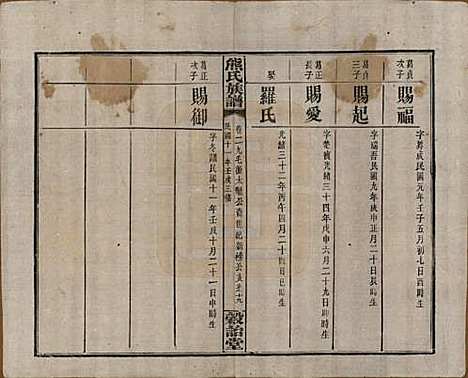 葛貞
次子
賜福
字昇成民國元年壬子五月初七日酉時生
葛貞
三子
賜起
字瑞吾民國九年庚申正月二十日辰時生
葛正
長子
賜愛
字楚清光緒三十四年戊申六月二十九日時生
娶
羅氏
光緒三十二年丙午四月二十四日巳時生
熊氏族譜
卷二十九
民國十一年壬戌三修
穀詒堂
葛正
次子
賜御
字冬諸民國十一年壬戌十月二十一日申時生